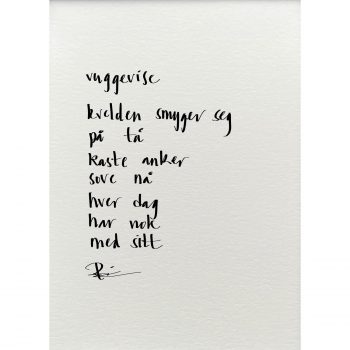 vuggevise
kvelden smyger seg
på tå
kaste anker
sove nå
hver dag
har nok
med sitt